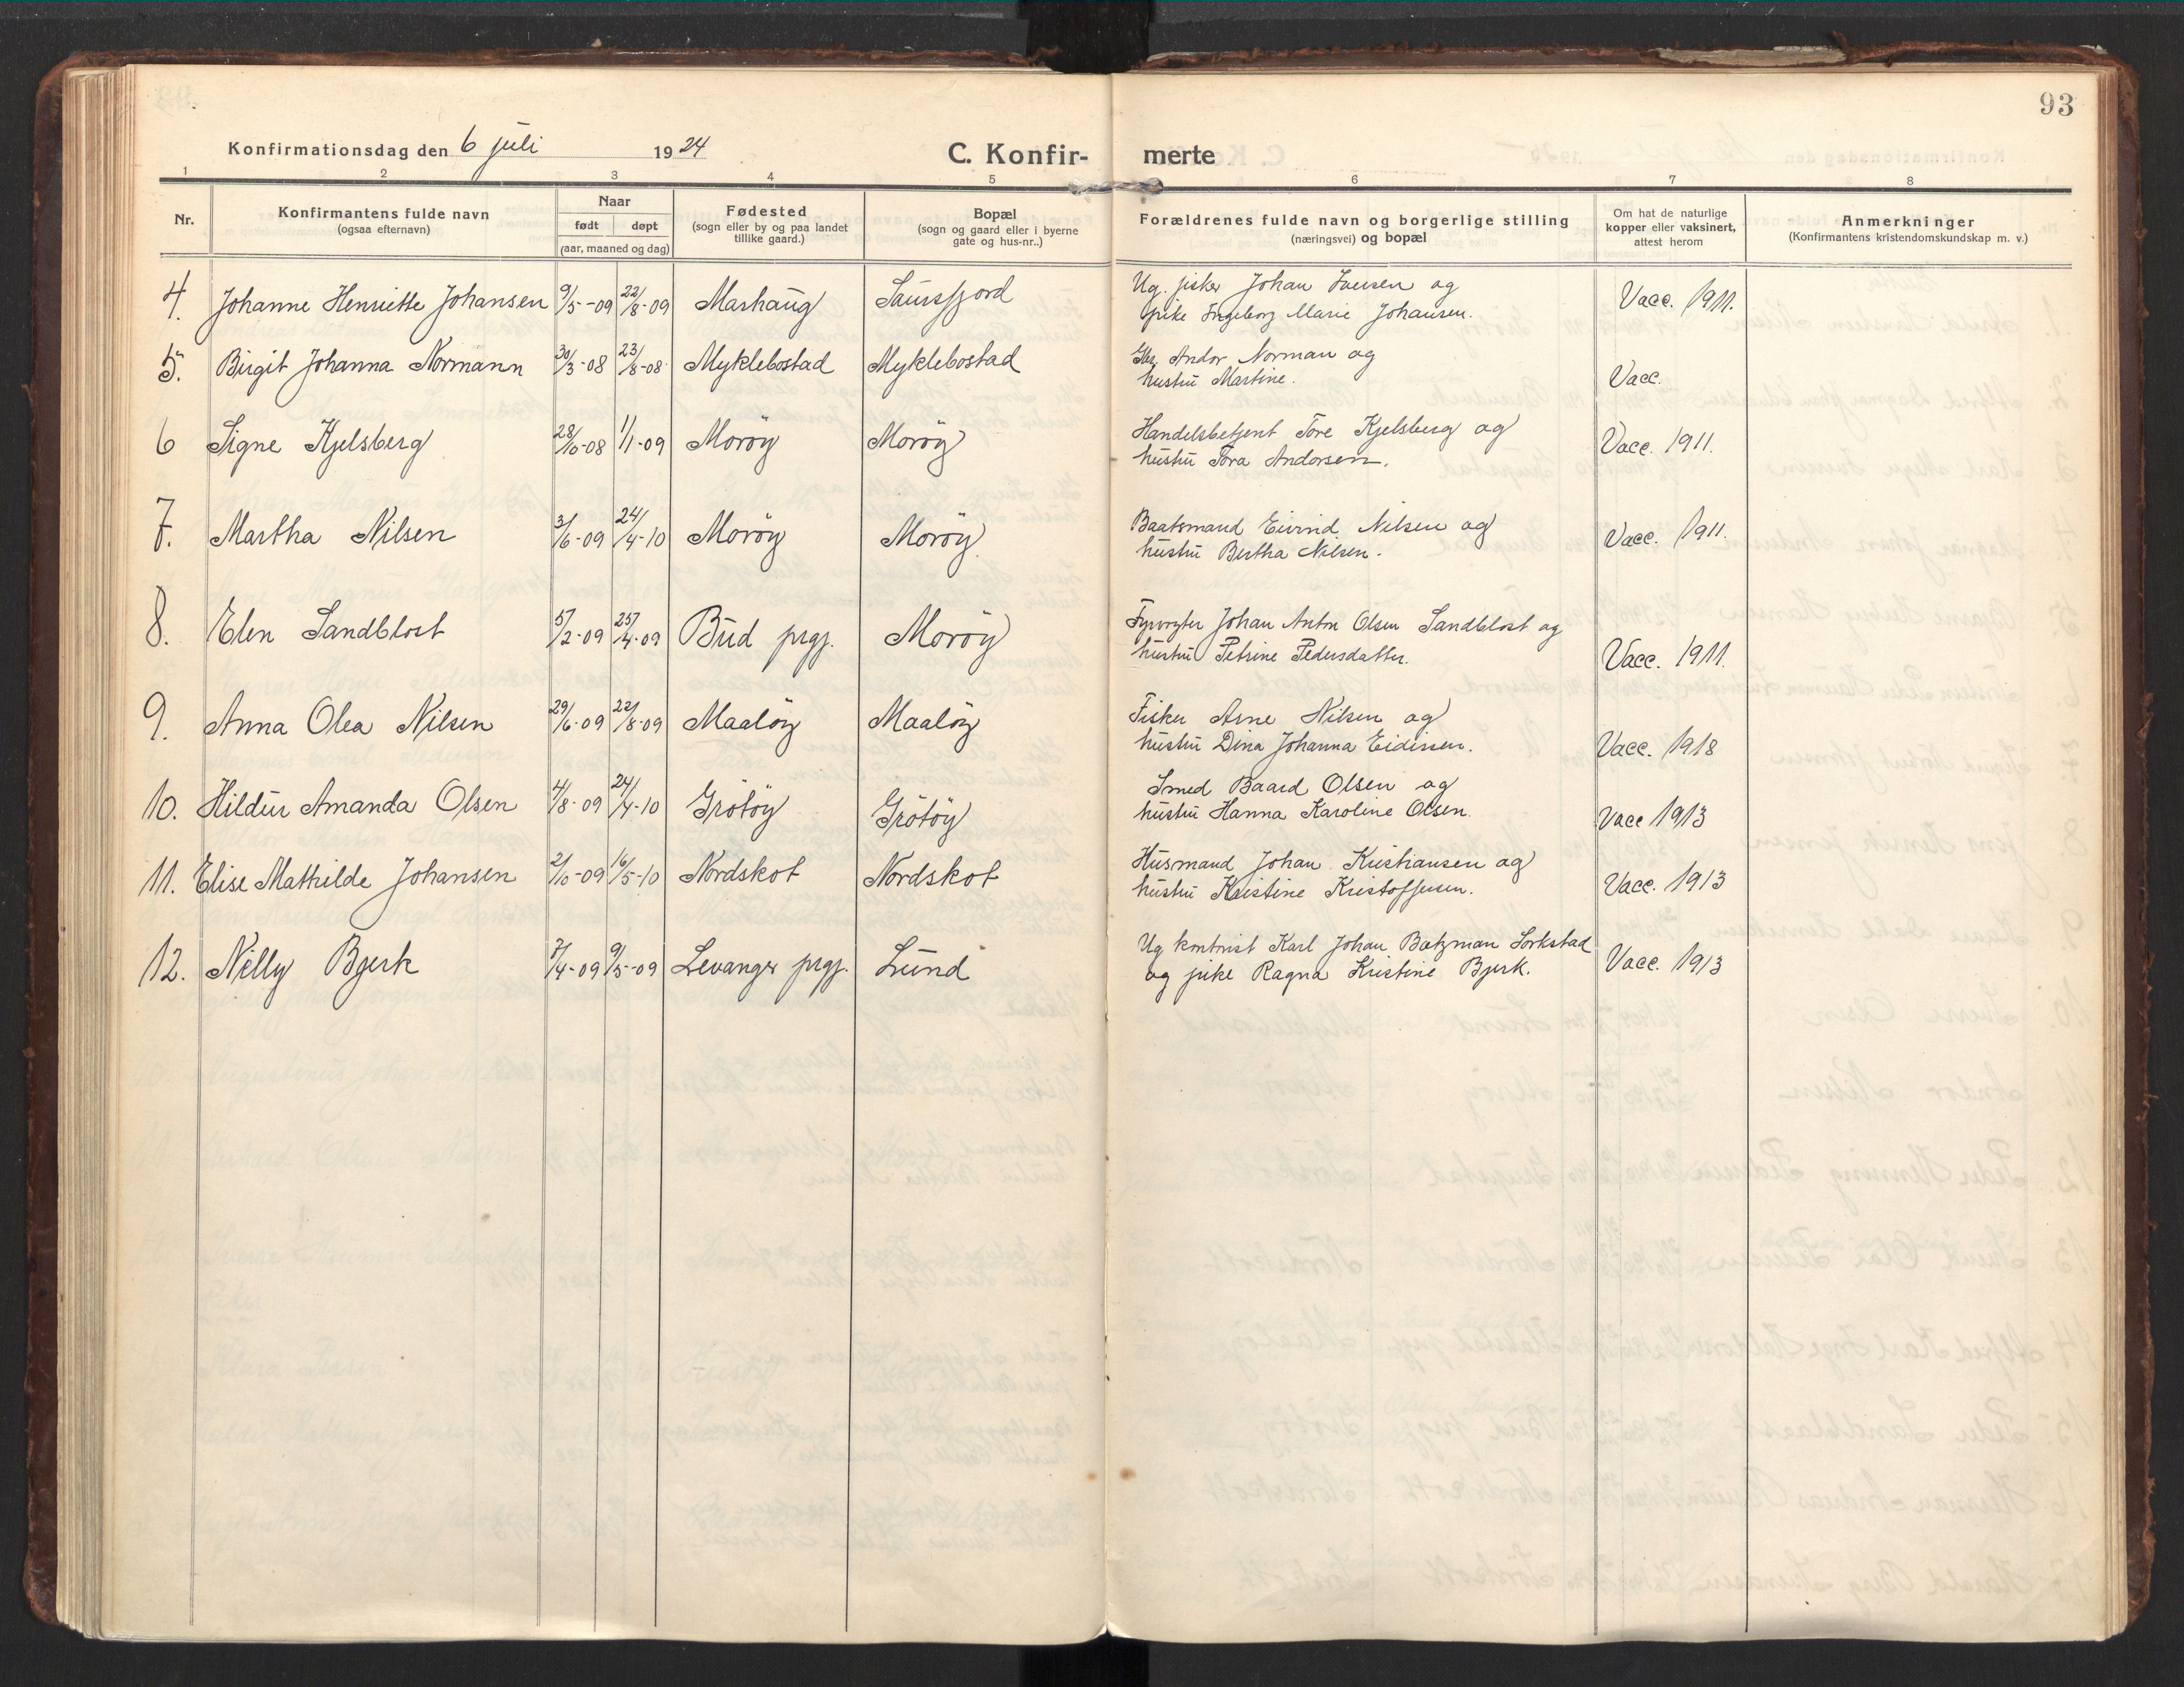 93
Konfirmationsdag den 6 juli 1924
C. Konfir- merte
1 2 3 4 5 6 7 8
Nr.
Konfirmantens fulde navn
(ogsaa efternavn)
Naar
født døpt
(aar, maaned og dag)
Fødested
(sogn eller by og paa landet
tillike gaard.)
Bopæl
(sogn og gaard eller i byerne
gate og hus-nr..)
Forældrenes fulde navn og borgerlige stilling
(næringsvei) og bopæl
Om hat de naturlige
kopper eller vaksinert,
attest herom
Anmerkninger
(Konfirmantens kristendomskundskap m. v.)
4. Johanne Henriette Johansen 9/5-09 22/8-09 Marhaug Saursfjord Ug. fisker Johan Iversen og
pike Ingeborg Marie Johansen. Vacc. 1911.
5. Birgit Johanna Normann 30/3-08 23/8-08 Myklebostad Myklebostad Andor Norman og
hustru Martine. Vacc.
6 Signe Kjelsberg 28/10-08 1/1-09 Moröy Moröy Handelsbetjent Tore Kjelsberg og
hustru Tora Andorsen. Vacc. 1911.
7. Martha Nilsen 3/6-09 24/4-10 Moröy Moröy Baatsmand Eivind Nilsen og
hustru Bertha Nilsen. Vacc. 1911.
8. Elen Sandblost 5/2-09 25/4-09 Bud prgj. Moröy Fyrvogter Johan Anton Olsen Sandblost og
hustru Petrine Pedersdatter. Vacc. 1911.
9. Anna Olea Nilsen 29/6-09 22/8-09 Maalöy Maalöy Fisker Arne Nilsen og
hustru Dina Johanna Eidissen. Vacc. 1918
10. Hildur Amanda Olsen 4/8-09 24/4-10 Grötöy Grötöy Smed Baard Olsen og
hustru Hanna Karoline Olsen. Vacc 1913
11. Elise Mathilde Johansen 2/10-09 16/5-10 Nordskot Nordskot Husmand Johan Kristiansen og
hustru Kristine Kristoffersen. Vacc. 1913
12. Nelly Bjerk 7/4-09 9/5-09 Levanger prgj. Lund Ug kontorist Karl Johan Botzman Lorkstad
og pike Ragna Kristine Bjerk. Vacc. 1913